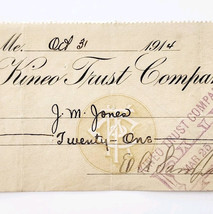 Me. Oct 31 1914
Kineo Trust Compan
J. M. Jones
Twenty One
TRUST COMPA